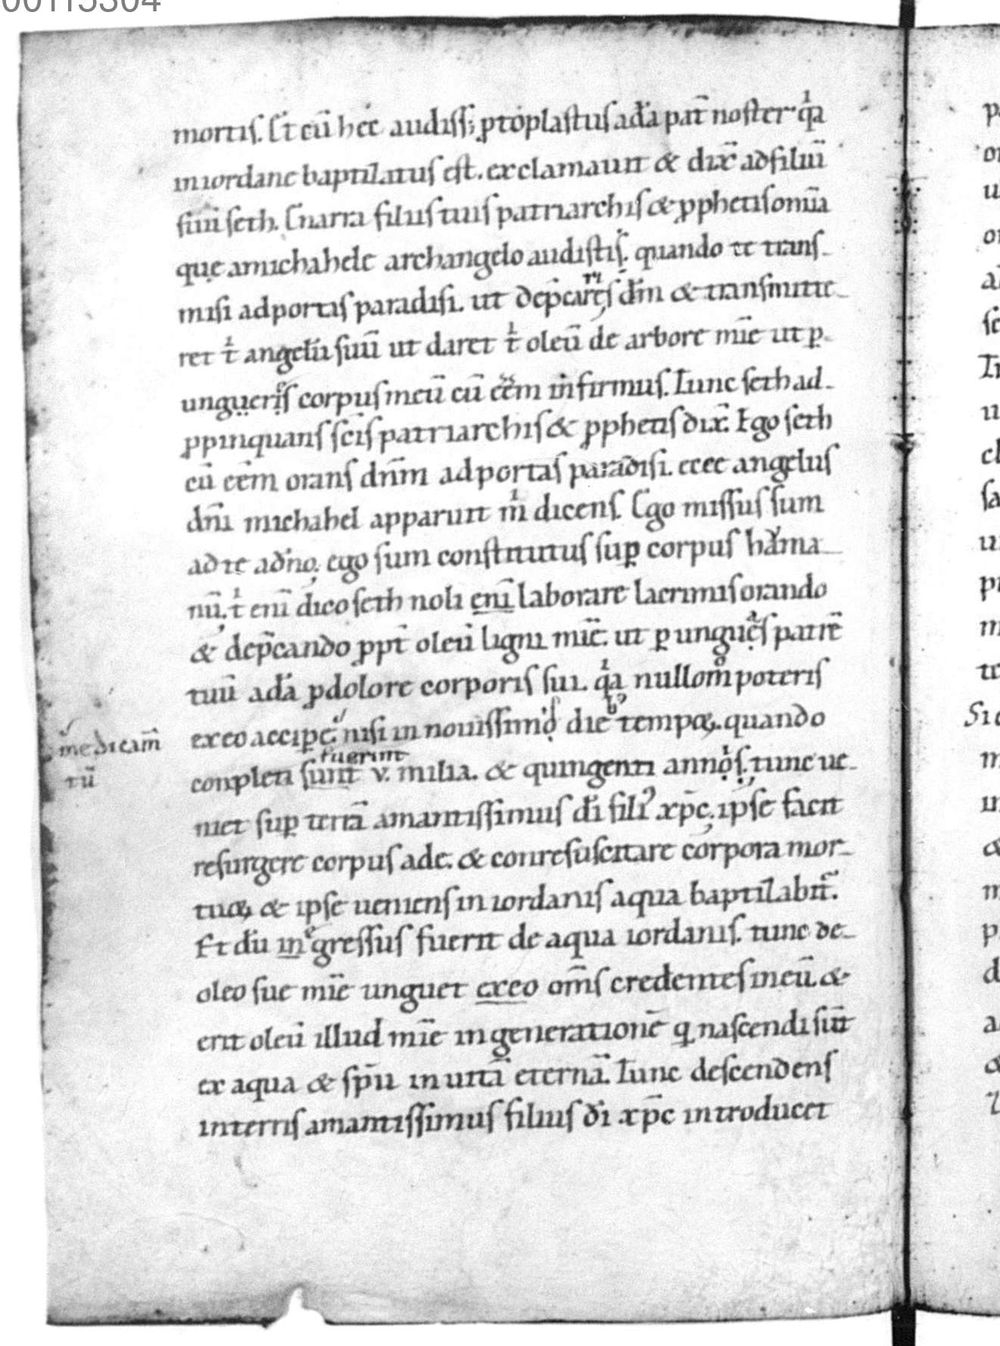 00115304
mortis. Et cū hęc audiss; ꝓtoplastus adā pat̄ noster qͥa
in iordane baptizatus est. exclamauit & dix̄ ad filiū
suū seth. Enarra filiis tuis patriarchis & ꝓphetis om̄ia
quę a michahele archangelo audistiͥs. quando te trans-
misi ad portas paradisi. ut dep̄careͬris dm̄ & transmitte-
ret tͥ angelū suū ut daret tͥ oleū de arbore mīe ut p-
ungueris corpus meū cū eēm infirmus. Tunc seth ad-
ꝓpinquans scīs patriarchis & ꝓphetis dix̄. Ego seth
cū eēm orans dnm̄ ad portas paradisi. ecce angelus
dnī michahel apparuit mͥ dicens. Ego missus sum
ad te a dn̄o. ego sum constitutus suꝑ corpus huma-
nū, tͥ enī dico seth noli enī laborare lacrimis orando
& dep̄cando ꝓpt̄ oleū ligni mīe. ut ꝑ unguęs patrē
tuū adā ꝓ dolore corporis sui. qͥa nullom̊ poteris
ex eo accipe, nisi in nouissimo die tempoꝝ. quando
medicam̄
tū
fuerint
conpleti sunt v. milia. & quingenti annos. tunc ue-
niet suꝑ terrā amantissimus dī fili xp̄c. ipse faciet
resurgere corpus ade. & conresuscitare corpora mor-
tuoꝝ & ipse ueniens in iordanis aqua baptizabit̄.
Et dū ingressus fuerit de aqua iordanis. tunc de-
oleo sue mīe unguet ex eo om̄s credentes in eū &
erit oleū illud mīe in generationē q nascendi sūt
ex aqua & sp̄u in uitā eternā. Tunc descendens
in terris amantissimus filius dī xp̄c introducet